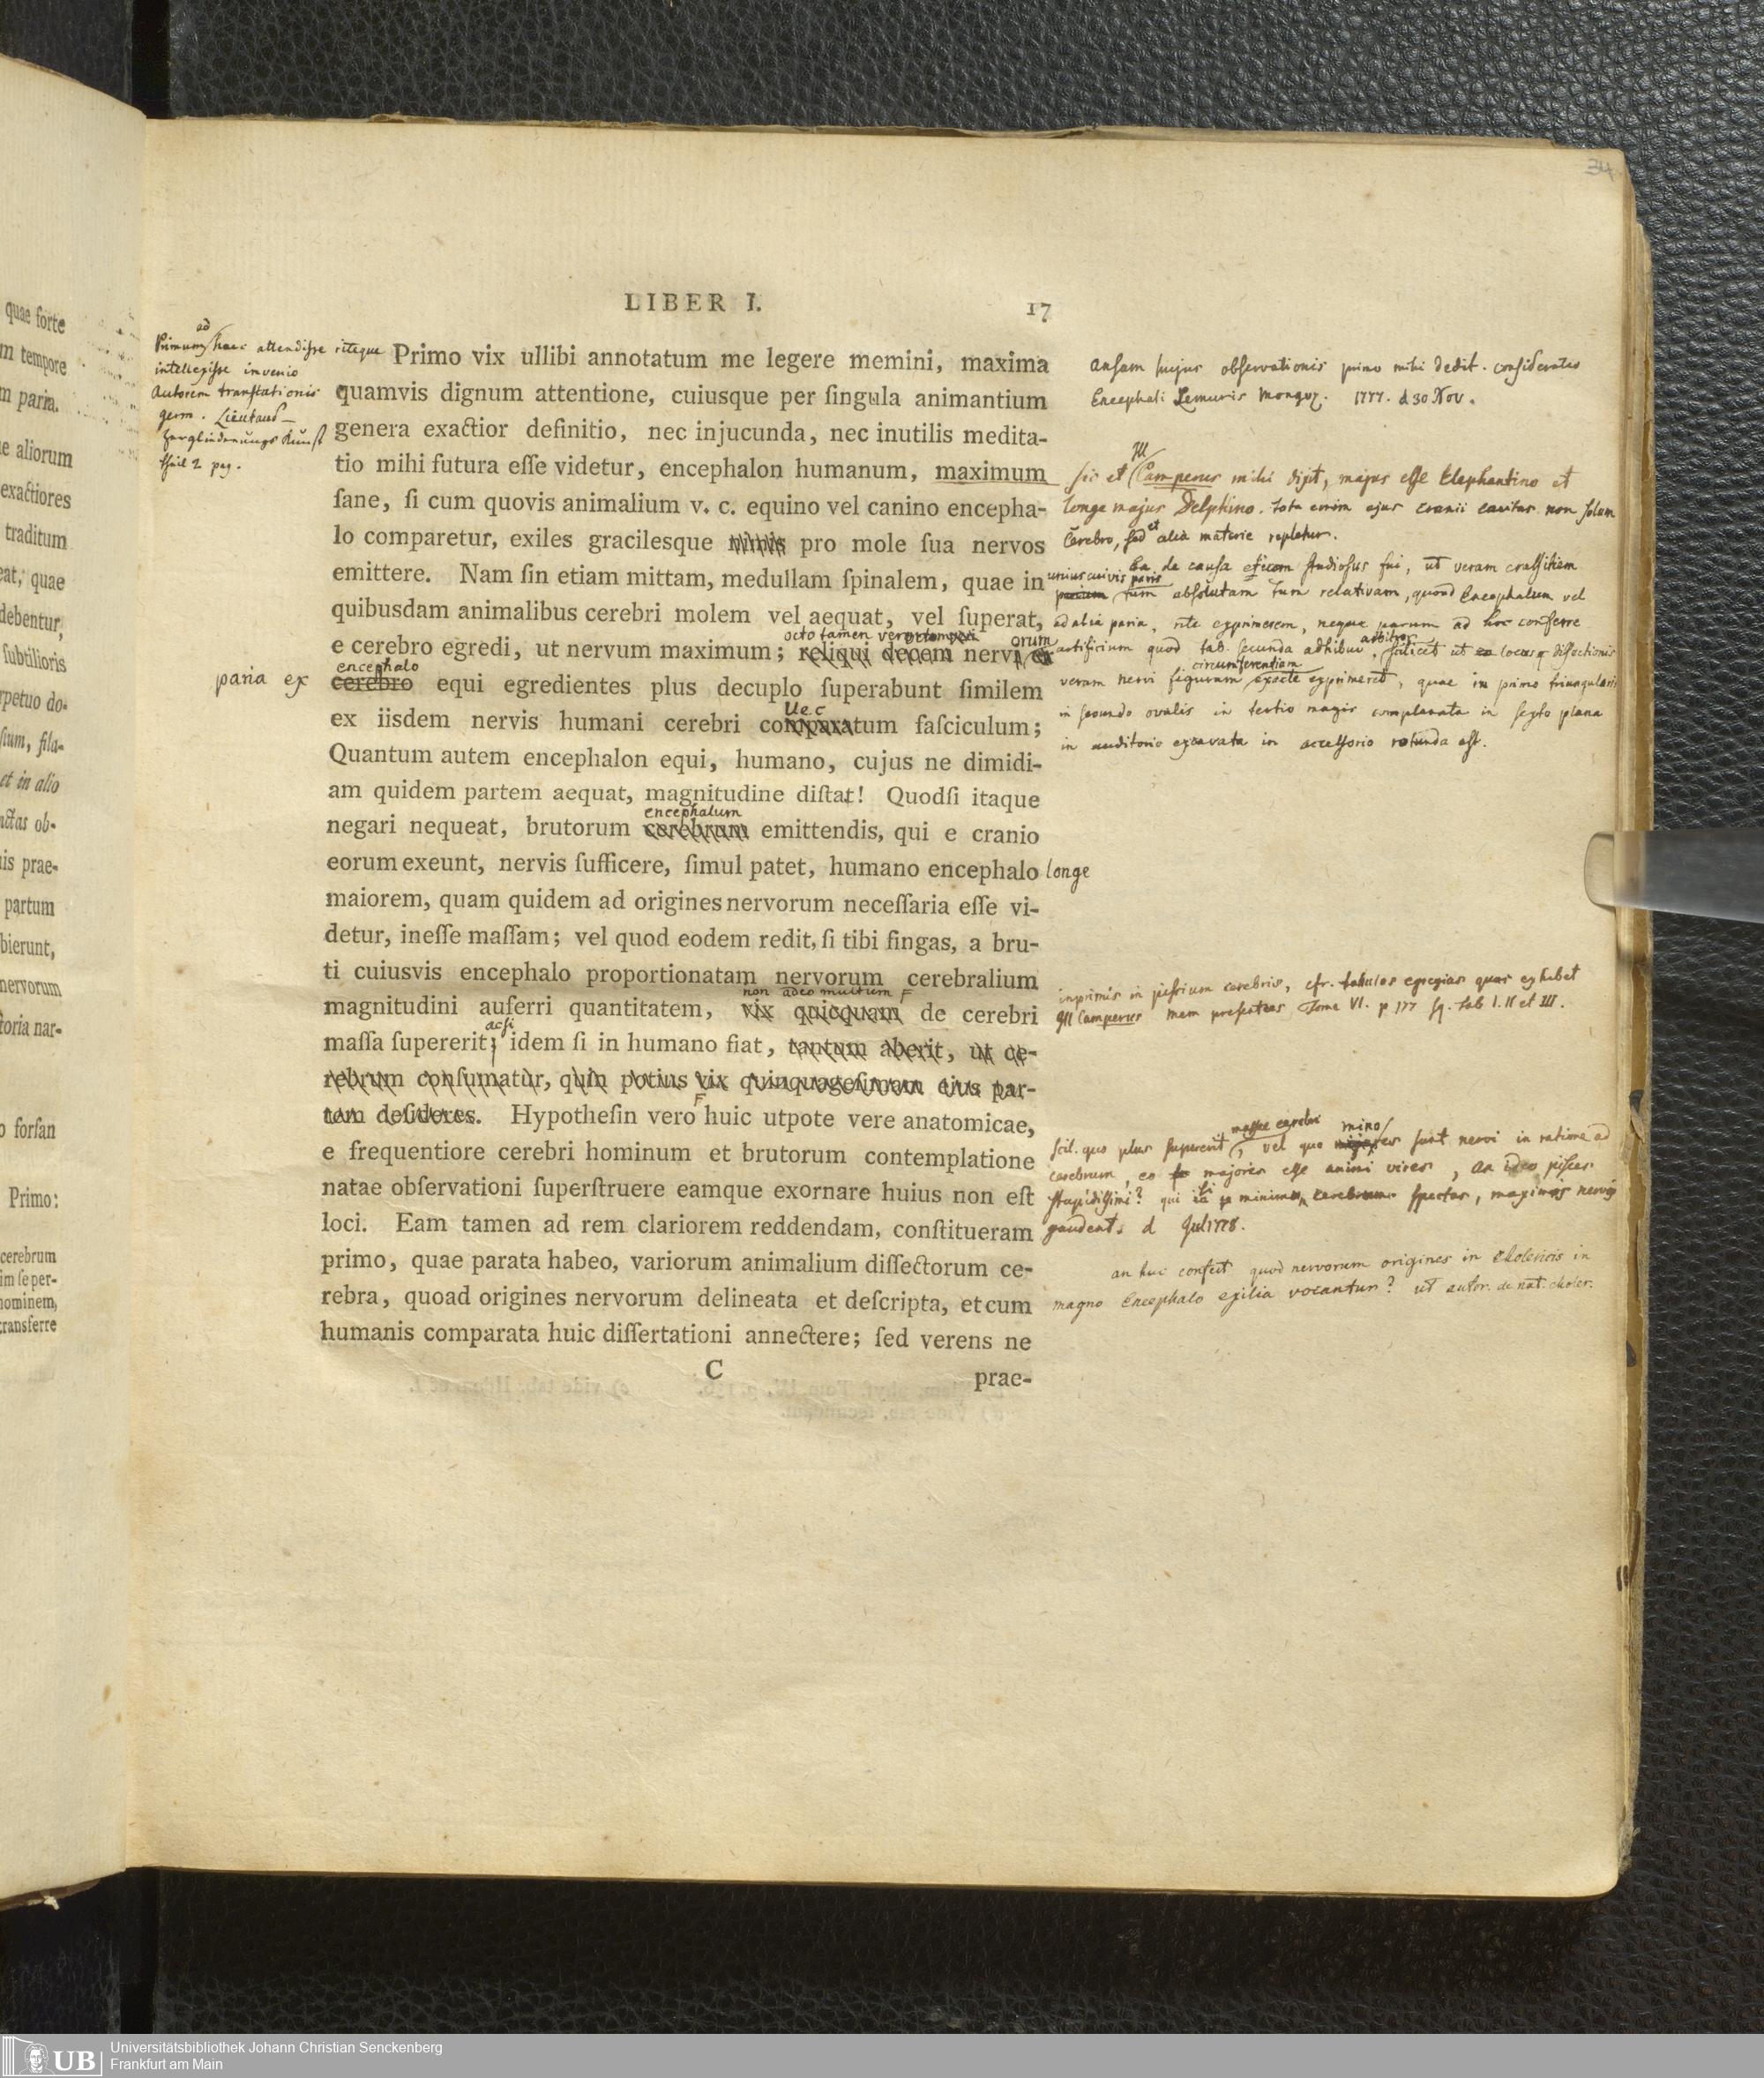 quae forte
m tempore
m paria.
e aliorum
exactiores
traditum
eat, quae
debentur,
ſubtilioris
rpetuo do-
ſium, fila-
et in alio
nctas ob-
uis prae-
partum
bierunt,
nervorum
toria nar-
o forſan
Primo:
cerebrum
im ſe per-
hominem,
transferre
34
LIBER I.
17
ad
Primum haec attendiſſe riteque
intellexiſſe invenio
Autorem translationis
germ. Lieutaud
Zergliederungs Kunſt
theil 2 pag.
paria ex
Primo vix ullibi annotatum me legere memini, maxima
quamvis dignum attentione, cuiusque per ſingula animantium
genera exactior definitio, nec injucunda, nec inutilis medita-
tio mihi futura eſſe videtur, encephalon humanum, maximum
ſane, ſi cum quovis animalium v. c. equino vel canino encepha-
lo comparetur, exiles gracilesque nimis pro mole ſua nervos
emittere. Nam ſin etiam mittam, medullam ſpinalem, quae in
quibusdam animalibus cerebri molem vel aequat, vel ſuperat,
octo tamen vero orum
e cerebro egredi, ut nervum maximum; reliqui decem nervi ex
encephalo
cerebro equi egredientes plus decuplo ſuperabunt ſimilem
ex iisdem nervis humani cerebri comparatum faſciculum;
Quantum autem encephalon equi, humano, cujus ne dimidi-
am quidem partem aequat, magnitudine diſtat! Quodſi itaque
encephalum
negari nequeat, brutorum cerebrum emittendis, qui e cranio
eorum exeunt, nervis ſufficere, ſimul patet, humano encephalo longe
maiorem, quam quidem ad origines nervorum neceſſaria eſſe vi-
detur, ineſſe maſſam; vel quod eodem redit, ſi tibi fingas, a bru-
ti cuiusvis encephalo proportionatam nervorum cerebralium
non adeo multum F
magnitudini auferri quantitatem, vix quicquam de cerebri
ac ſi
maſſa ſupererit; idem ſi in humano fiat, tantum aberit, ut ce-
rebrum conſumatur, quin potius vix quinquageſimam eius par-
tem deſideres. F Hypotheſin vero huic utpote vere anatomicae,
e frequentiore cerebri hominum et brutorum contemplatione
natae obſervationi ſuperſtruere eamque exornare huius non eſt
loci. Eam tamen ad rem clariorem reddendam, conſtitueram
primo, quae parata habeo, variorum animalium diſſectorum ce-
rebra, quoad origines nervorum delineata et deſcripta, et cum
humanis comparata huic diſſertationi annectere; ſed verens ne
C
prae-
anſam hujus obſervationis primo mihi dedit. conſideratio
Encephali Lemuris Mongoz. 1777. d 30 Nov.
Ill
ſic et Camperus mihi dixit, majus eſſe Elephantino et
longe majus Delphino. tota enim ejus cranii cavitas non ſolum
Cerebro, ſed et alia materie repletur.
Ea de cauſa etiam ſtudioſus fui, ut veram craſſitiem
uniuscuivis paris
tum abſolutam tum relativam, quoad Encephalum vel
ad alia paria, rite exprimerem, neque parum ad hoc conferre
arbitror
artificium quod tab. ſecunda adhibui, ſcilicet ut locus diſſectionis
circumferentiam
veram nervi figuram exacte exprimeret, quae in primo triangularis
in ſecundo ovalis in tertio magis complanata in ſexto plana
in auditorio excavata in acceſſorio rotunda eſt.
inprimis in piſcium cerebris, cfr. tabulas egregias quas exhibet
Ill Camperus Mem preſentees Tome VI. p 177 ſq. tab I. II et III.
maſſae cerebri mino
ſcil. quo plus ſupererit, vel quo res ſunt nervi in ratione ad
cerebrum, eo majores eſſe animi vires, an ideo piſces
ſtupidiſſimi? qui ſi minimum cerebrum ſpectas, maximis nervis
gaudent. d Jul 1778.
an huc confert quod nervorum origines in cholericis in
magno Encephalo exilia vocantur? ut autor. de nat. choler.
Universitätsbibliothek Johann Christian Senckenberg
Frankfurt am Main
UB